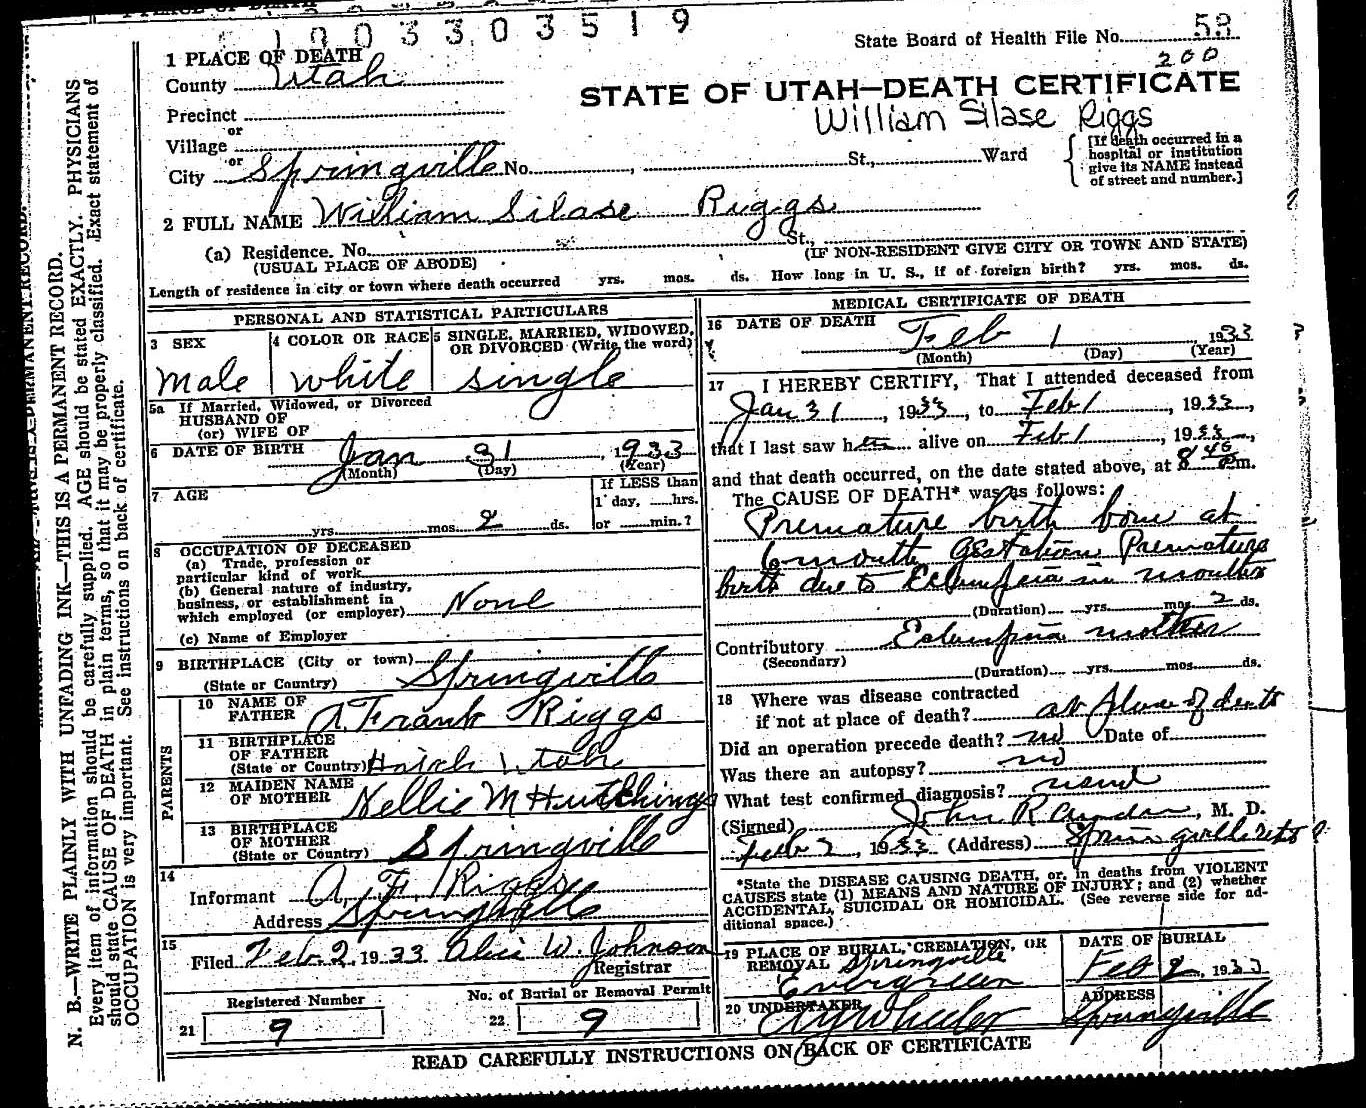 1003303519
State Board of Health File No. 58
200
1 PLACE OF DEATH
County Utah
STATE OF UTAH—DEATH CERTIFICATE
William Silase Riggs
Precinct
or
Village
or
City Springville No. , St., Ward
[If death occurred in a hospital or institution give its NAME instead of street and number.]
2 FULL NAME William Silase Riggs
(a) Residence. No. St.,
(USUAL PLACE OF ABODE) (IF NON-RESIDENT GIVE CITY OR TOWN AND STATE)
Length of residence in city or town where death occurred yrs. mos. ds. How long in U. S., if of foreign birth? yrs. mos. ds.
PERSONAL AND STATISTICAL PARTICULARS
3 SEX
Male
4 COLOR OR RACE
White
5 SINGLE, MARRIED, WIDOWED, OR DIVORCED (Write the word)
Single
5a If Married, Widowed, or Divorced
HUSBAND OF
(or) WIFE OF
6 DATE OF BIRTH Jan 31, 1933
(Month) (Day) (Year)
7 AGE
yrs. mos. 2 ds.
If LESS than
1 day, hrs.
or min.?
8 OCCUPATION OF DECEASED
(a) Trade, profession or
particular kind of work
(b) General nature of industry,
business, or establishment in
which employed (or employer) None
(c) Name of Employer
9 BIRTHPLACE (City or town)
(State or Country) Springville
PARENTS
10 NAME OF FATHER A. Frank Riggs
11 BIRTHPLACE OF FATHER
(State or Country) Utah
12 MAIDEN NAME OF MOTHER Nellie M Hutchings
13 BIRTHPLACE OF MOTHER
(State or Country) Springville
14
Informant A. F. Riggs
Address Springville
15
Filed Feb. 2, 1933 Alice W. Johnson
Registrar
Registered Number
21 9
No. of Burial or Removal Permit
22 9
MEDICAL CERTIFICATE OF DEATH
16 DATE OF DEATH Feb 1 1933
(Month) (Day) (Year)
17 I HEREBY CERTIFY, That I attended deceased from
Jan 31, 1933, to Feb 1, 1933,
that I last saw h alive on Feb 1, 1933,
and that death occurred, on the date stated above, at 8 45 m.
The CAUSE OF DEATH* was as follows:
Premature birth born at
6 month gestation Premature
birth due to Eclampsia in mother
(Duration) yrs. mos. 2 ds.
Contributory Eclampsia mother
(Secondary)
(Duration) yrs. mos. ds.
18 Where was disease contracted
if not at place of death? at place of death
Did an operation precede death? no Date of
Was there an autopsy? no
What test confirmed diagnosis? usual
(Signed) John R , M. D.
Feb 2, 1933 (Address) Springville Utah
*State the DISEASE CAUSING DEATH, or, in deaths from VIOLENT
CAUSES state (1) MEANS AND NATURE OF INJURY; and (2) whether
ACCIDENTAL, SUICIDAL OR HOMICIDAL. (See reverse side for additional space.)
19 PLACE OF BURIAL, CREMATION, OR REMOVAL Springville
Evergreen
DATE OF BURIAL
Feb 2, 1933
20 UNDERTAKER
Wheeler
ADDRESS
Springville
READ CAREFULLY INSTRUCTIONS ON BACK OF CERTIFICATE
N. B.—WRITE PLAINLY WITH UNFADING INK—THIS IS A PERMANENT RECORD.
Every item of information should be carefully supplied. AGE should be stated EXACTLY. PHYSICIANS
should state CAUSE OF DEATH in plain terms, so that it may be properly classified. Exact statement of
OCCUPATION is very important. See instructions on back of certificate.